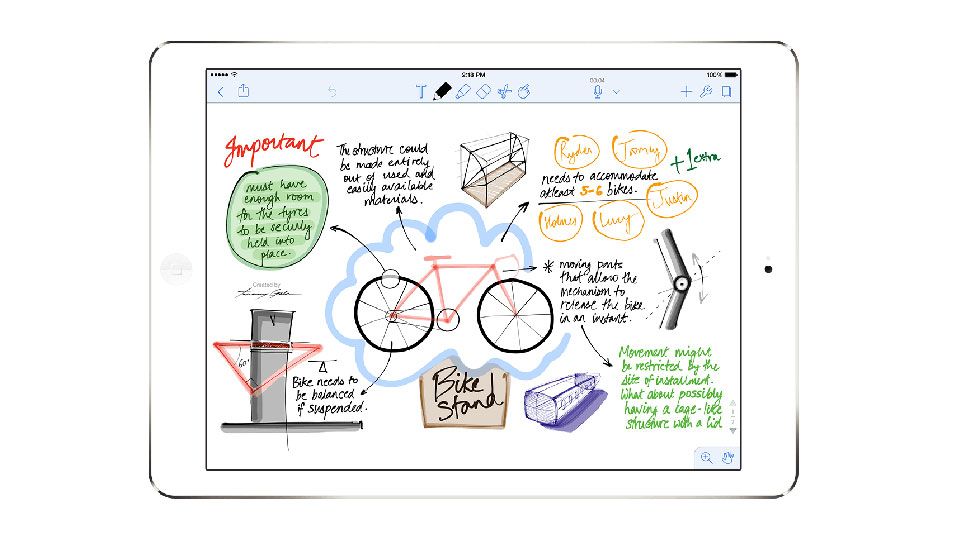 2:18 PM
100%
T
Important
The structure could
be made entirely
out of used and
easily available
materials.
must have
enough room
for the tyres
to be securly
held into
place.
Ryder
Tommy
+1 extra
needs to accommodate
atleast 5-6 bikes.
Justin
Holmes
Lucy
* moving parts
that allow the
mechanism to
release the bike
in an instant.
Created by
60°
Bike needs to
be balanced
if suspended.
Bike
Stand
Movement might
be restricted by the
site of installment.
What about possibly
having a cage-like
structure with a lid